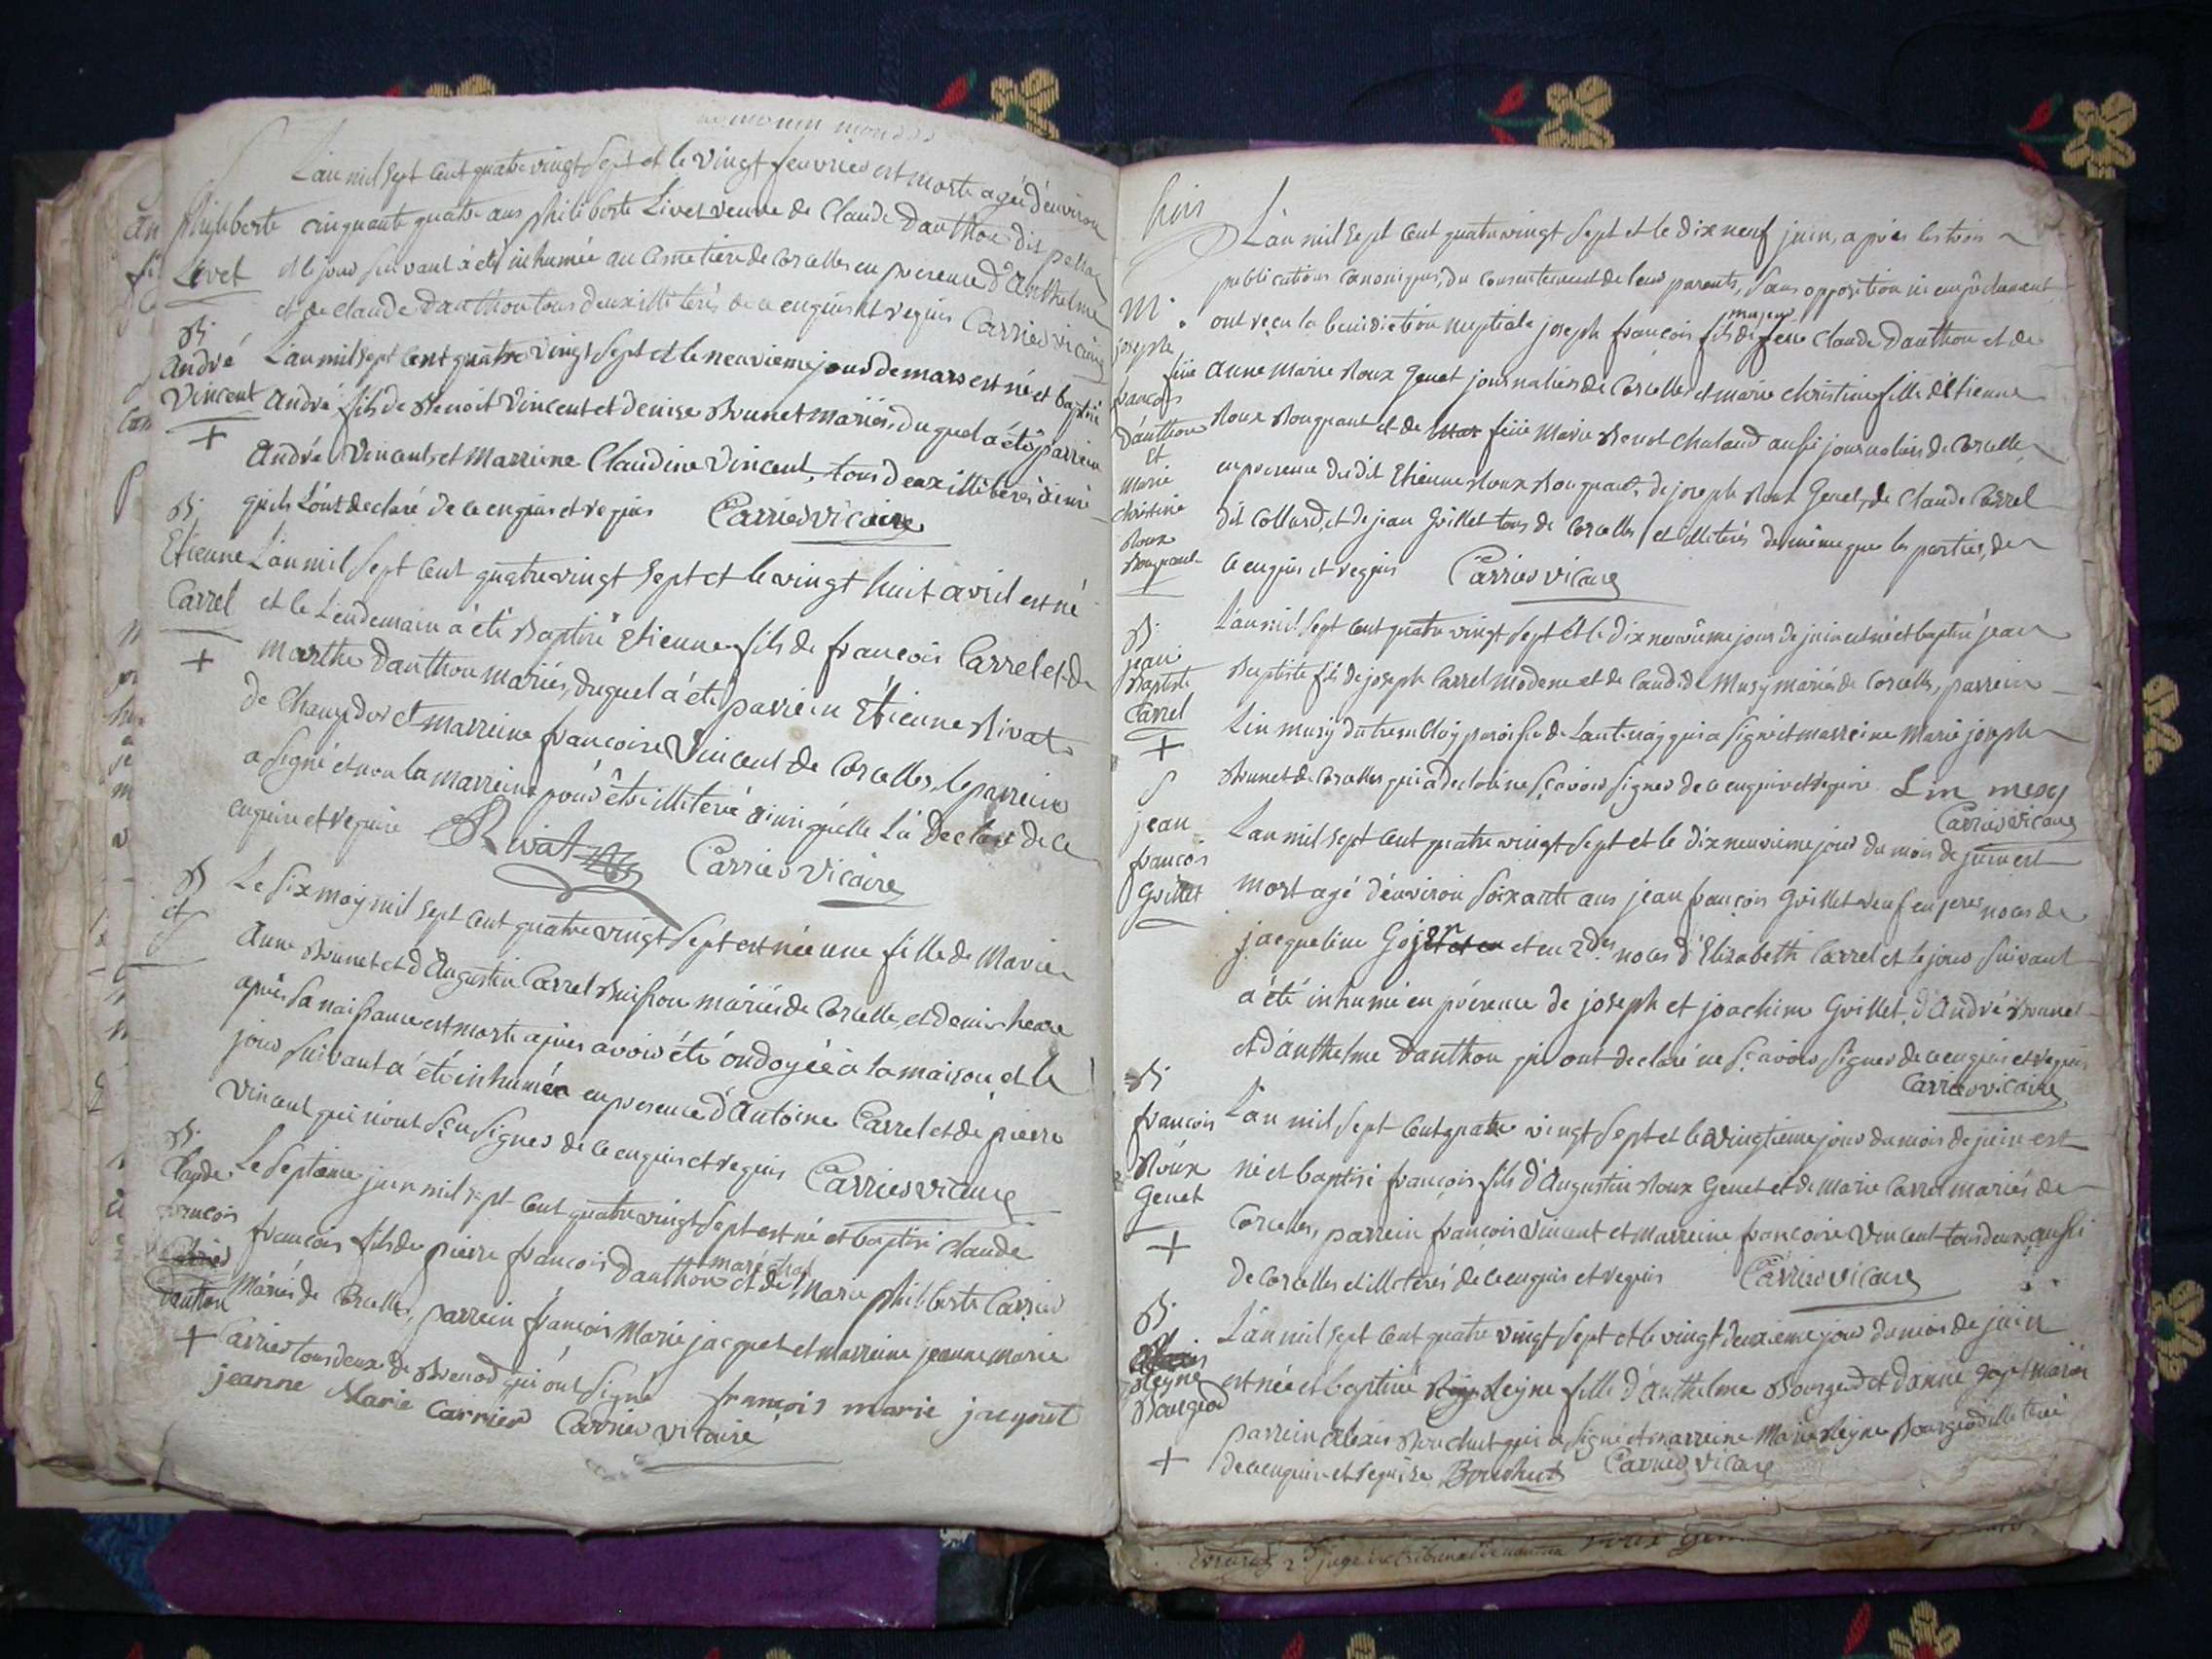 S
Lan mil sept cent quatre vingt sept et le vingt feuvrier est morte agée d'environ
philiberte
Livet
cinquante quatre ans philiberte Livet veuve de Claude Dauthon dit
et le jour suivant à été inhumée au Cimetiere de Corcelles en presence d'Anthelme
et de claude Dauthon tous deux illiterés de ce enquis et requis Carrier vicaire
B.
André
Vincent
+
L'an mil sept cent quatre vingt sept et le neuvieme jour de mars est né et baptisé
André fils de Benoit Vincent et denise Brunet mariés, duquel a été parrein
André Vincent, et Marreine Claudine Vincent, tous deux illiterés ainsi
qu'ils L'ont declaré de ce enquis et requis Carrier vicaire
B.
Etienne
Carrel
+
L'an mil sept cent quatre vingt sept et le vingt huit avril est né
et le Lendemain à été Baptisé Etienne fils de francois Carrel et de
marthe Dauthon mariés, duquel à été parrein Etienne Rivat
de Champdor et marreine francoise Vincent de Corcelles, le parrein
a signé et non la marreine pour être illiterée ainsi qu'elle L'a declaré de ce
enquise et requise Rivat Carrier Vicaire
B
et
S
Le six may mil sept cent quatre vingt sept est née une fille de Marie
Anne Brunet et d'Augustin Carrel Buisson mariés de Corcelle, et demis heure
après sa naissance est morte apries avoir été ondoyée à la maison et le
jour suivant a été inhumée en presence d'Antoine Carrel et de pierre
Vincent qui n'ont sçu signer de ce enquis et requis Carrier vicaire
B.
Claude
francois
Dauthon
+
Le septieme juin mil sept cent quatre vingt sept est né et baptisé claude
francois fils de pierre francois Dauthon maréchal et de Marie philiberte Carrier
Mariés de Corcelle, parrein francois Marie jacquet et marreine jeanne marie
Carrier tous deux de Brenod qui ont signé francois marie jacquet
jeanne Marie Carrier Carrier vicaire
juin
L'an mil sept cent quatre vingt sept et le dix neuf juin, apries les trois
publications canoniques, du consentement de leurs parents, sans opposition ni empechement
M.
joseph
francois
Dauthon
et
marie
christine
Roux
Bougnant
ont reçu la benediction nuptiale joseph francois fils majeur de feu Claude Dauthon et de
feüe anne marie Roux Genet journalier de Corcelle et marie christine fille d'Etienne
Roux Bougnant et de feüe Marie Benet Chaland aussi journaliers de Corcelle
en presence dudit Etienne Roux Bougnant, de joseph Roux Genet, de Claude Carrel
dit Collard, et de jean Guillet tous de Corcelles et illiterés de même que les parties, de
ce enquis et requis Carrier vicaire
B.
jean
Baptiste
Carrel
+
L'an mil sept cent quatre vingt sept et le dix neuvieme jour de juin est né et baptisé jean
Baptiste fils de joseph Carrel Modene et de Claudi de Musy mariés de Corcelles, parrein
Lin musy du tremblay paroisse de Lantenay qui a signé et marreine Marie joseph
Brunet de Corcelles qui a declaré ne sçavoir signer de ce enquis et requise Lin mesy
Carrier vicaire
S
jean
francois
Guillet
L'an mil sept cent quatre vingt sept et le dix neuvieme jour du mois de juin est
mort agé d'environ soixante ans jean francois Guillet veuf en 1eres noces de
jacqueline et en 2des noces d'Elizabeth Carrel et le jour suivant
a été inhumé en présence de joseph et joachim Guillet, d'André Brunet
et d'anthelme Dauthon qui ont declaré ne sçavoir signer de ce enquis et requis
Carrier vicaire
B.
francois
Roux
Genet
+
L'an mil sept cent quatre vingt sept et le vingtieme jour du mois de juin est
né et baptisé francois fils d'Augustin Roux Genet et de marie Carrel mariés de
Corcelles, parrein francois Vincent et marreine francoise Vincent tous deux aussi
de Corcelles et illiterés de ce enquis et requis Carrier vicaire
B.
Reyne
Bourgeod
+
L'an mil sept cent quatre vingt sept et le vingt deuxieme jour du mois de juin
est née et baptisée Reyne fille d'Anthelme Bourgeod et d'anne mariés
parrein alexis Bouchut qui a signé et marreine Marie Reyne Bourgeod illiterée
de ce enquise et requise Bouchut Carrier vicaire